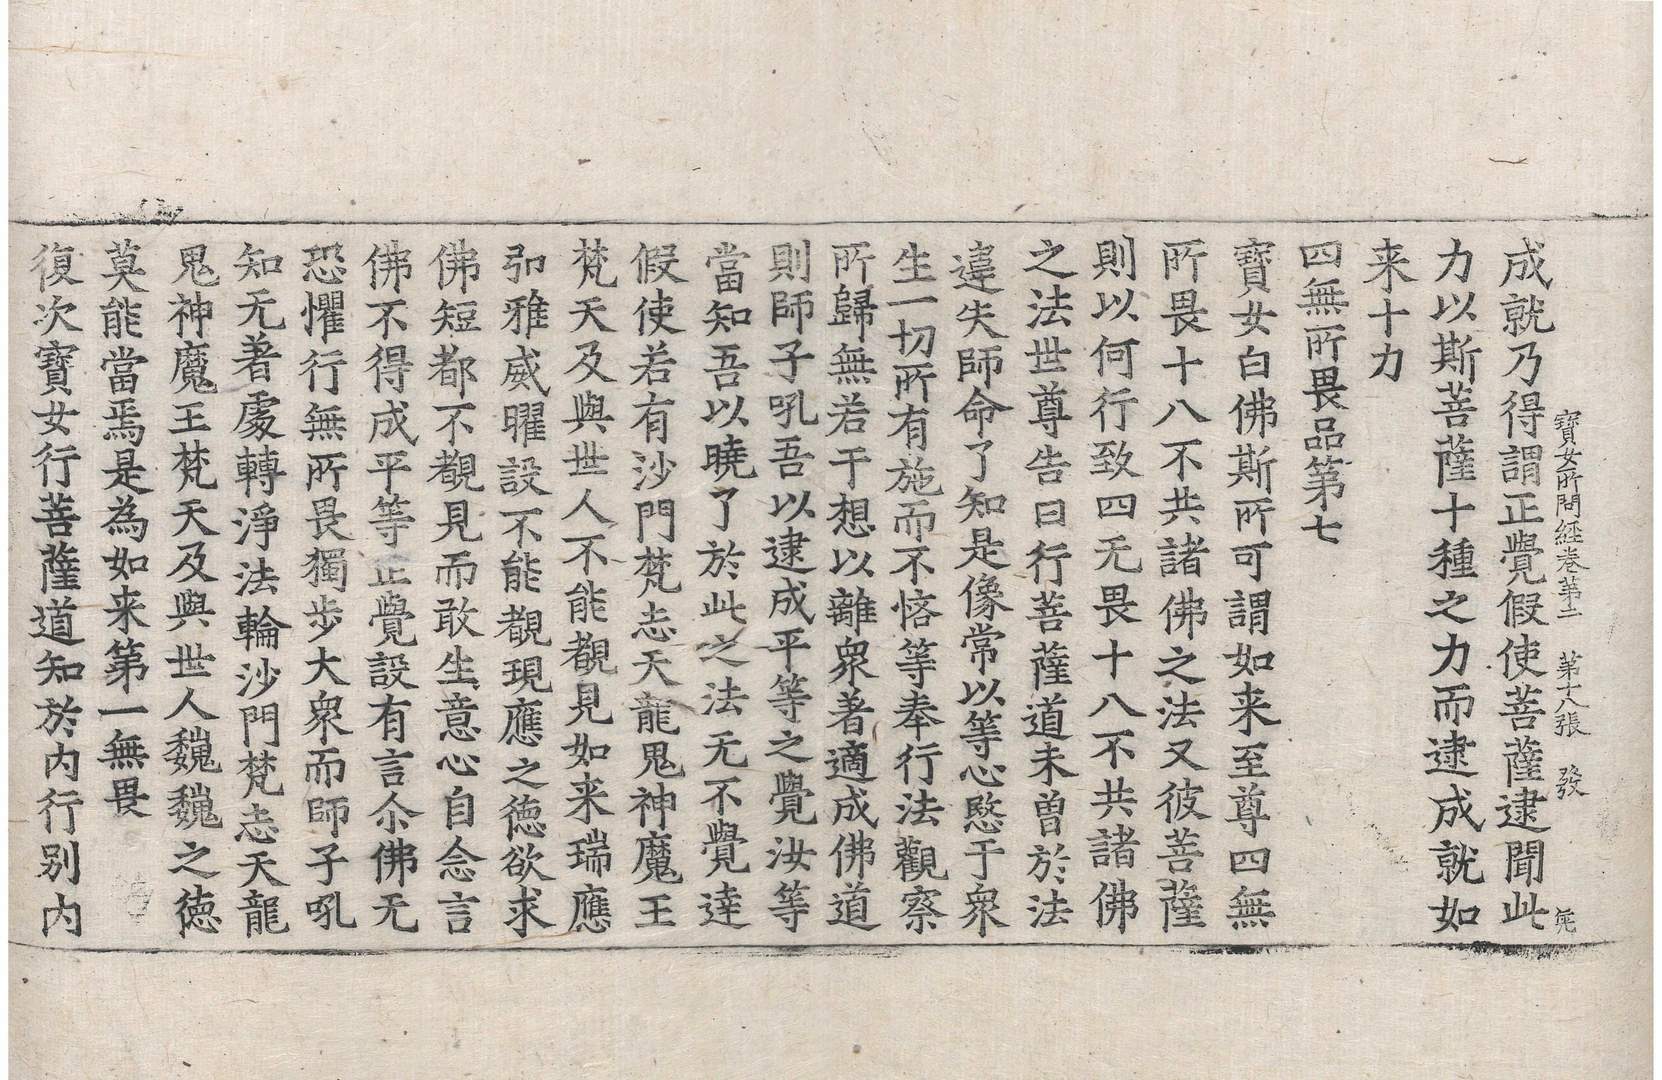 寶女所問經卷第二 第十八張 發
成就乃得謂正覺假使菩薩逮聞此
力以斯菩薩十種之力而逮成就如
来十力
四無所畏品第七
寶女白佛斯所可謂如来至尊四無
所畏十八不共諸佛之法又彼菩薩
則以何行致四无畏十八不共諸佛
之法世尊告曰行菩薩道未曽於法
違失師命了知是像常以等心愍于衆
生一切所有施而不悋等奉行法觀察
所歸無若干想以離衆著適成佛道
則師子吼吾以逮成平等之覺汝等
當知吾以曉了於此之法无不覺達
假使若有沙門梵志天龍鬼神魔王
梵天及與世人不能覩見如来瑞應
弘雅威曜設不能覩現應之徳欲求
佛短都不覩見而敢生意心自念言
佛不得成平等正覺設有言尒佛无
恐懼行無所畏獨步大衆而師子吼
知无著處轉淨法輪沙門梵志天龍
鬼神魔王梵天及與世人巍巍之徳
莫能當焉是為如来第一無畏
復次寶女行菩薩道知於内行别内